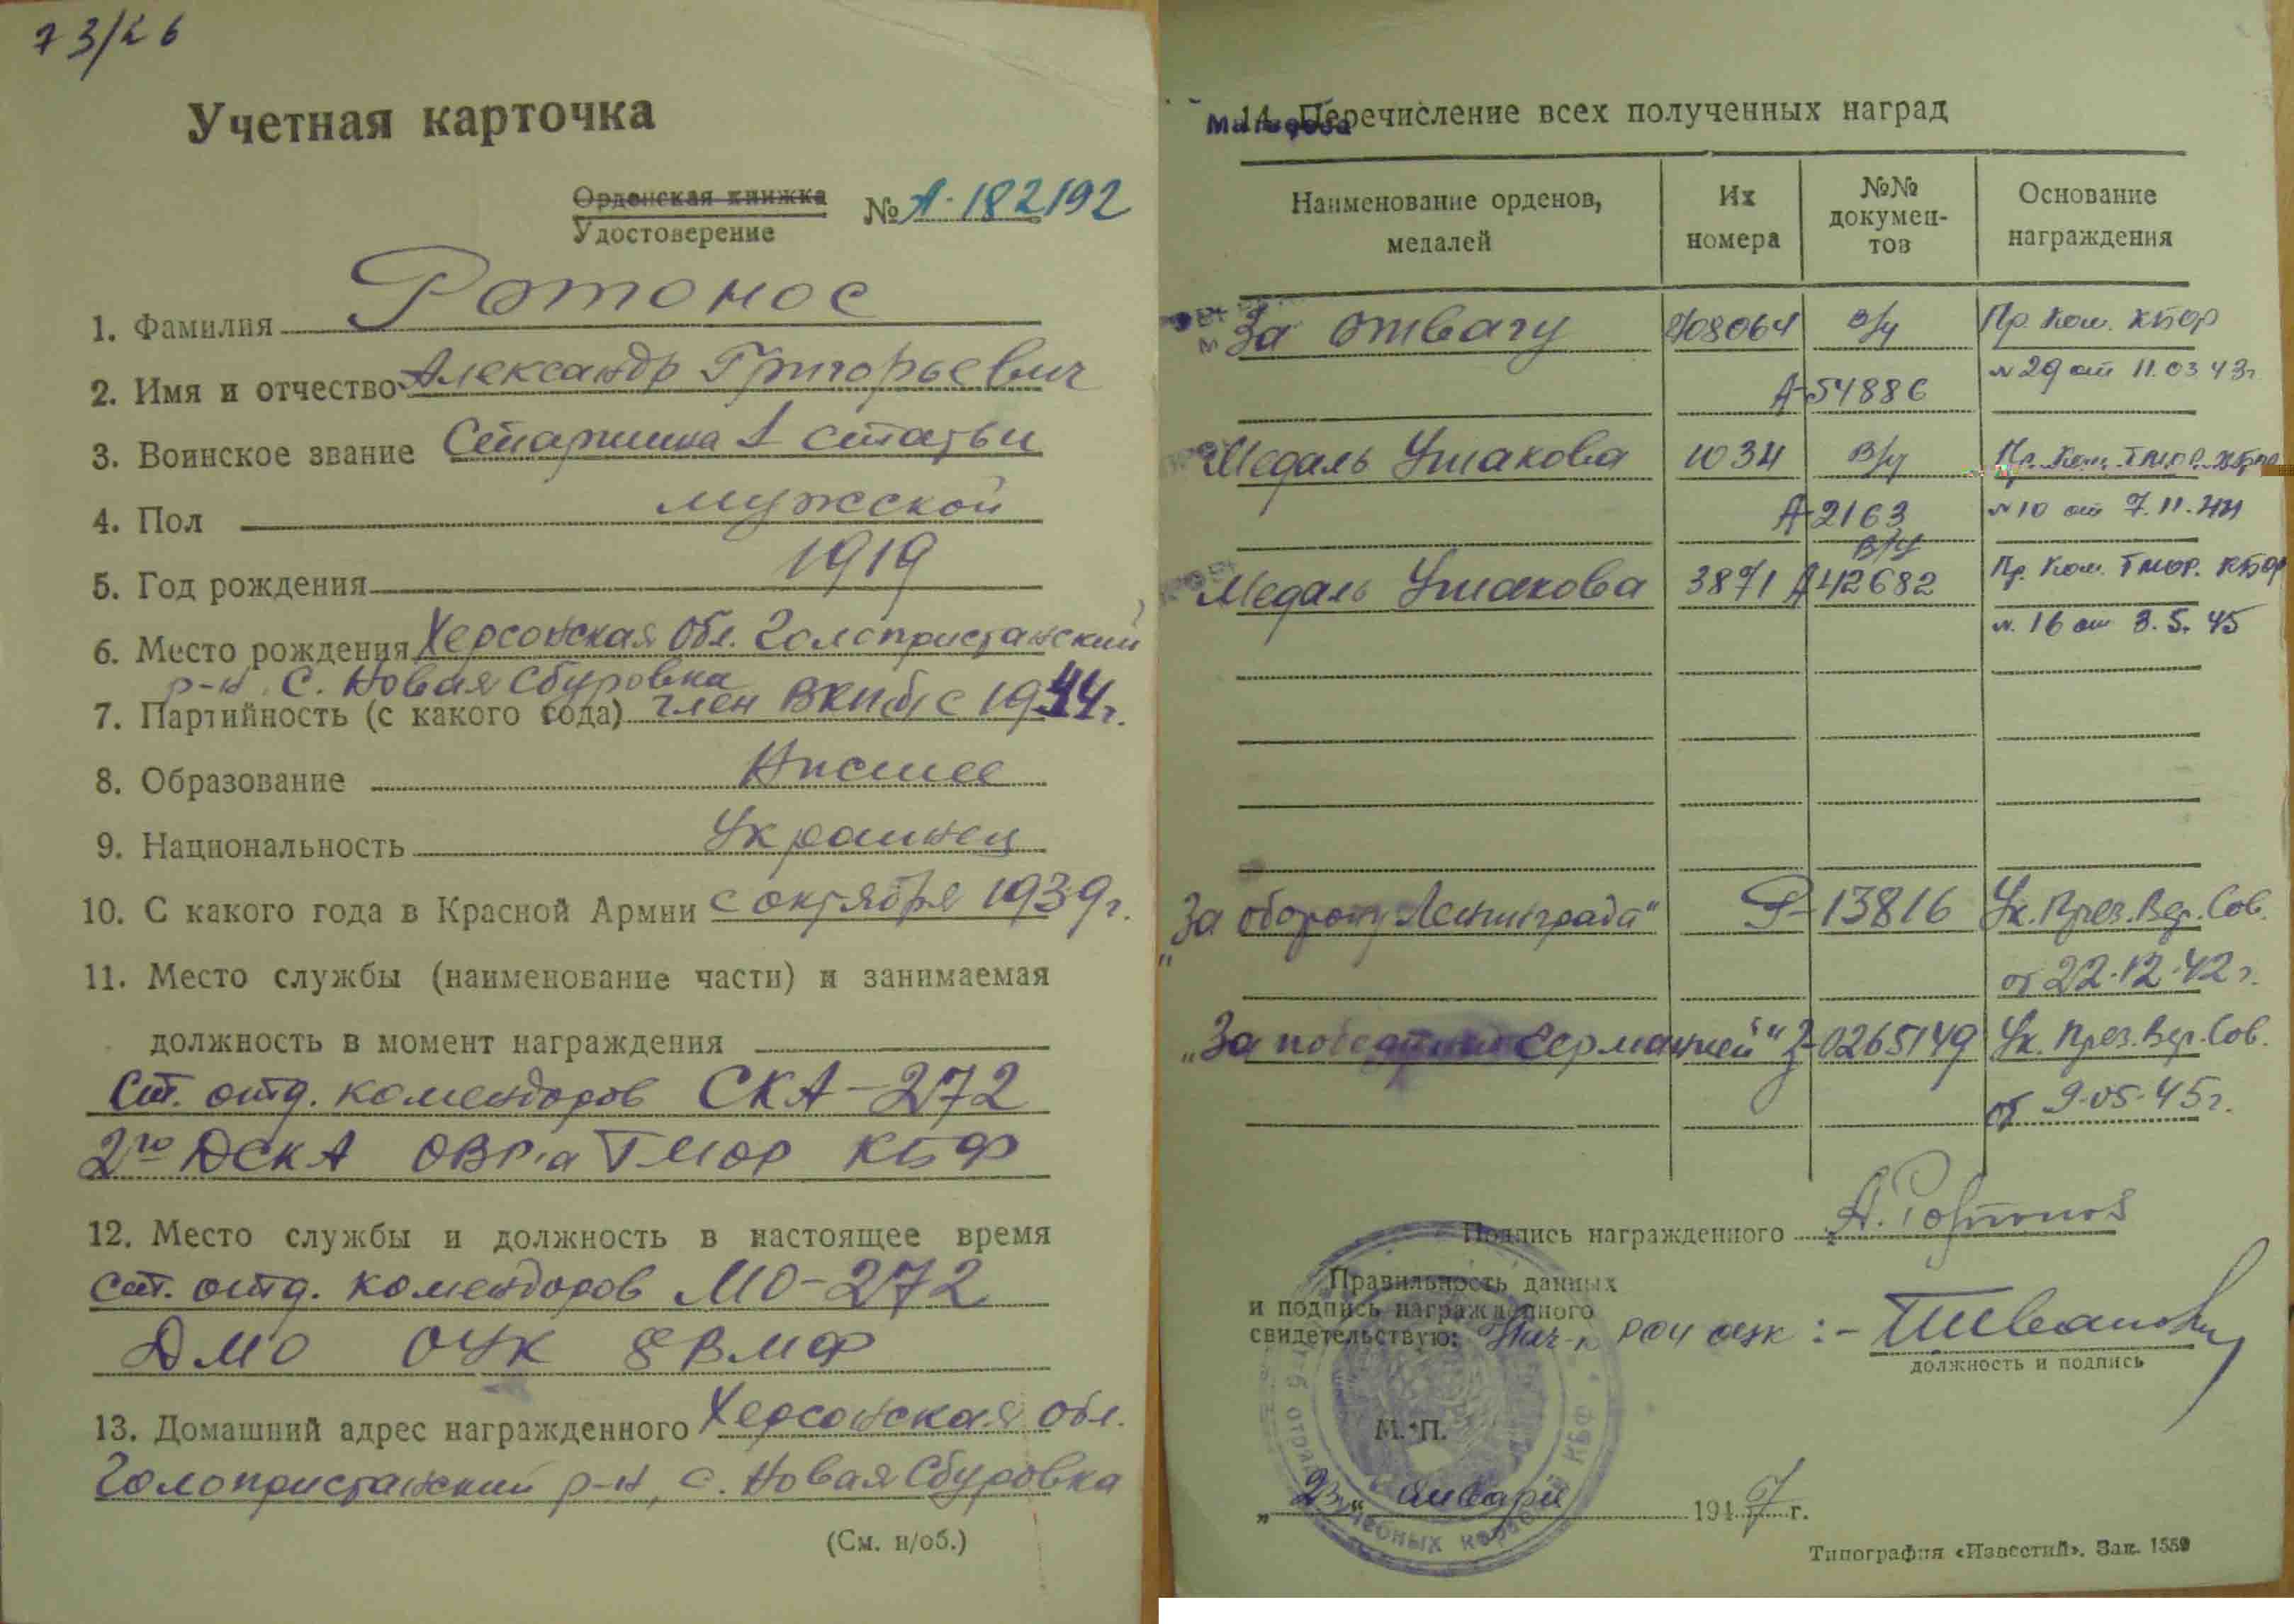 73/26
Учетная карточка
Орденская книжка
Удостоверение
№ А-182192
1. Фамилия Ротонос
2. Имя и отчество Александр Григорьевич
3. Воинское звание Старшина 1 статьи
4. Пол мужской
5. Год рождения 1919
6. Место рождения Херсонская обл. Голопристанский
р-н, с. Новая Сбуровка
7. Партийность (с какого года) член ВКП(б) с 1944г.
8. Образование Низшее
9. Национальность Украинец
10. С какого года в Красной Армии с октября 1939г.
11. Место службы (наименование части) и занимаемая
должность в момент награждения
Ст. отд. комендоров СКА-272
2го ДСКА ОВРа ТМОР КБФ
12. Место службы и должность в настоящее время
ст. отд. комендоров МО-272
ДМО ОУК 8ВМФ
13. Домашний адрес награжденного Херсонская обл.
Голопристанский р-н, с. Новая Сбуровка
(См. н/об.)
14. Перечисление всех полученных наград
Наименование орденов, медалей
Их номера
№№ докумен-тов
Основание награждения
За отвагу 708064 в/у Пр. Ком. КБОР
А-54886 №29 от 11.03 43г
Медаль Ушакова 1034 в/у Пр. Ком. ТМОР. КБФ
А 2163 №10 от 7.11.44
в/у
Медаль Ушакова 3871 А 42682 Пр. Ком. ТМОР. КБФ
№. 16 от 3.5.45
"За оборону Ленинграда" 13816 Ук. През. Вер. Сов.
от 22.12.42г.
"За победу над Германией" 0265149 Ук. През. Вер. Сов.
от 9.05.45г.
Подпись награжденного А. Ротонос
Правильность данных
и подпись награжденного
свидетельствую: Нач-к РСЧ ОУК :-
должность и подпись
М. П.
"23" января 1947 г.
Типография «Известий». Зак. 1559